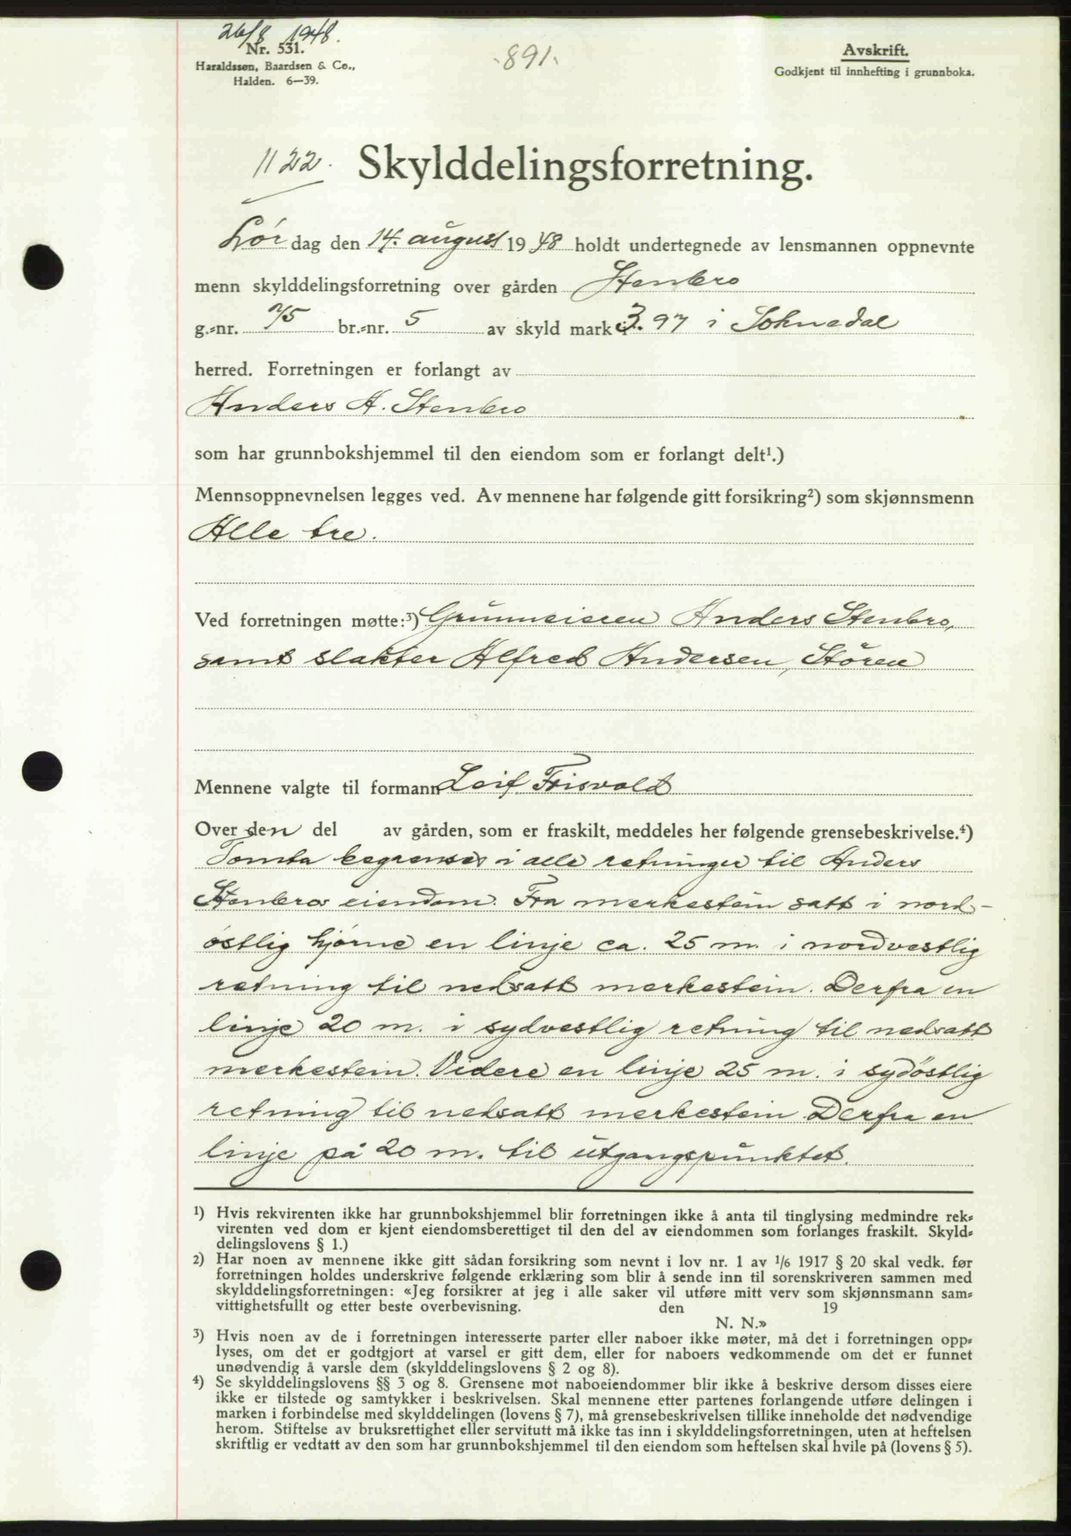 26/8 1948.
Nr. 531.
Haraldssøn, Baardsen & Co.,
Halden. 6—39.
-891-
Avskrift.
Godkjent til innhefting i grunnboka.
1122. Skylddelingsforretning.
Lør dag den 14. august 19 48 holdt undertegnede av lensmannen oppnevnte
menn skylddelingsforretning over gården Stenbro
g.-nr. 75 br.-nr. 5 av skyld mark 3.97 i Soknedal
herred. Forretningen er forlangt av
Anders A. Stenbro
som har grunnbokshjemmel til den eiendom som er forlangt delt¹.)
Mennsoppnevnelsen legges ved. Av mennene har følgende gitt forsikring²) som skjønnsmenn
Alle tre.
Ved forretningen møtte:³) Grunneieren Anders Stenbro,
samt slakter Alfred Andersen, Støren
Mennene valgte til formann Leif Frisvold
Over den del av gården, som er fraskilt, meddeles her følgende grensebeskrivelse.⁴)
Tomta begrenses i alle retninger til Anders
Stenbros eiendom. Fra merkestein satt i nord-
østlig hjørne en linje ca. 25 m. i nordvestlig
retning til nedsatt merkestein. Derfra en
linje 20 m. i sydvestlig retning til nedsatt
merkestein. Videre en linje 25 m. i sydøstlig
retning til nedsatt merkestein. Derfra en
linje på 20 m. til utgangspunktet.
¹) Hvis rekvirenten ikke har grunnbokshjemmel blir forretningen ikke å anta til tinglysing medmindre rek-
virenten ved dom er kjent eiendomsberettiget til den del av eiendommen som forlanges fraskilt. Skyld-
delingslovens § 1.)
²) Har noen av mennene ikke gitt sådan forsikring som nevnt i lov nr. 1 av 1/6 1917 § 20 skal vedk. før
forretningen holdes underskrive følgende erklæring som blir å sende inn til sorenskriveren sammen med
skylddelingsforretningen: «Jeg forsikrer at jeg i alle saker vil utføre mitt verv som skjønnsmann sam-
vittighetsfullt og etter beste overbevisning. den 19
N. N.»
³) Hvis noen av de i forretningen interesserte parter eller naboer ikke møter, må det i forretningen opp-
lyses, om det er godtgjort at varsel er gitt dem, eller for naboers vedkommende om det er funnet
unødvendig å varsle dem (skylddelingslovens § 2 og 8).
⁴) Se skylddelingslovens §§ 3 og 8. Grensene mot naboeiendommer blir ikke å beskrive dersom disses eiere
ikke er tilstede og samtykker i beskrivelsen. Skal mennene etter partenes forlangende utføre delingen i
marken i forbindelse med skylddelingen (lovens § 7), må grensebeskrivelsen tillike inneholde det nødvendige
herom. Stiftelse av bruksrettighet eller servitutt må ikke tas inn i skylddelingsforretningen, uten at heftelsen
skriftlig er vedtatt av den som har grunnbokshjemmel til den eiendom som heftelsen skal hvile på (lovens § 5).